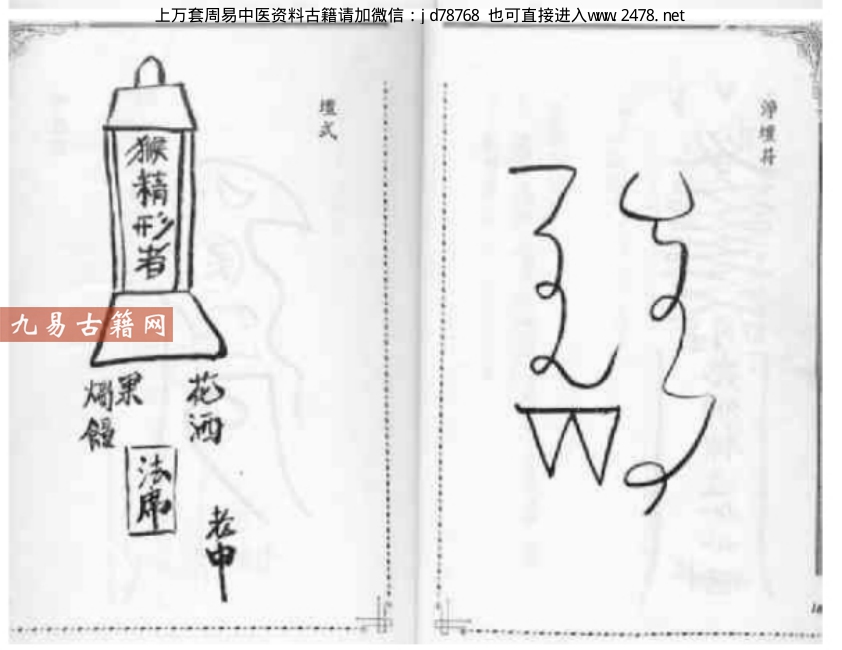 上万套周易中医资料古籍请加微信：jd78768 也可直接进入www.2478.net
淨壇符
壇式
猴精形者
九易古籍网
花酒
果
法席